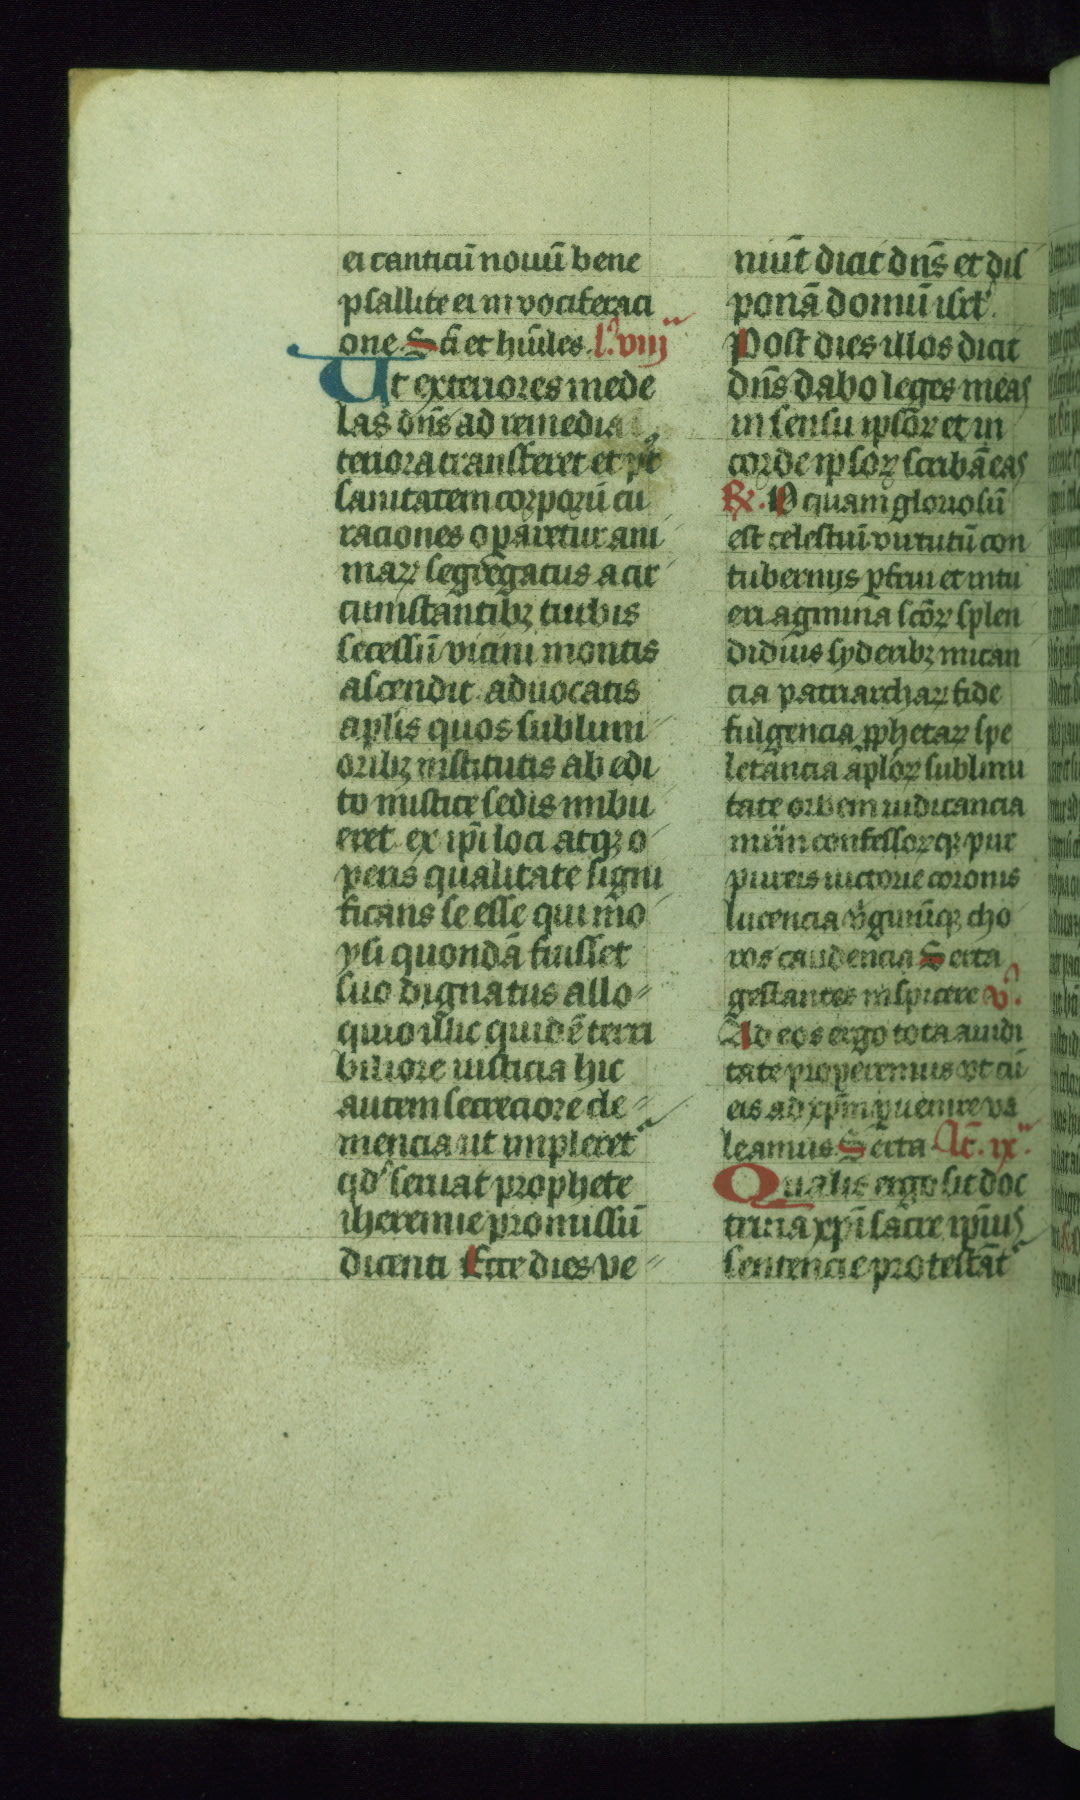 ei canticū nouū bene
psallite ei in vociferaci
one. Scī et hūiles. l. viij
Ut exteriores mede
las dn̄s ad remedia
teriora transferret et pt
sanitatem corporū cu
raciones oparetur ani
maꝝ segregatus a cir
cumstantibꝫ turbis
secessū vicini montis
ascendit aduocatis
aplīs quos sublimi
oribꝫ institutis ab edi
to mistice sedis imbu
eret ex ipī loci atqꝫ o
peris qualitate signi
ficans se esse qui mō
ysi quondā fuisset
suo dignatus allo
quio illic quidē terri
biliore iusticia hic
autem secreciore cle
mencia ut impleret
qd seruat prophete
iheremie promissū
dicenti Ecce dies ve
niūt dicit dn̄s et dis
ponā domū isrl.
Post dies illos dicit
dn̄s dabo leges meas
in sensu ipsōꝝ et in
corde ipsoꝝ scribā eas
℟. O quam gloriosū
est celestiū virtutū con
tubernijs pfrui et intu
eri agmina scōꝝ splen
didius syderibꝫ mican
cia patriarchaꝝ fide
fulgencia ꝓphetaꝝ spe
letancia aploꝝ sublimi
tate orbem iudicancia
confessorqꝫ pur
pureis victorie coronis
lucencia v̄ginūqꝫ cho
ros candencia Serta
gestantes inspicere v.
Ad eos ergo tota auidi
tate properemus vt cū
eis ad xpm̄ ꝑuenire va
leamus Serta Lc̄. ix
Qualis ergo sit doc
trina xpī sacre ipīus
sentencie protestāt